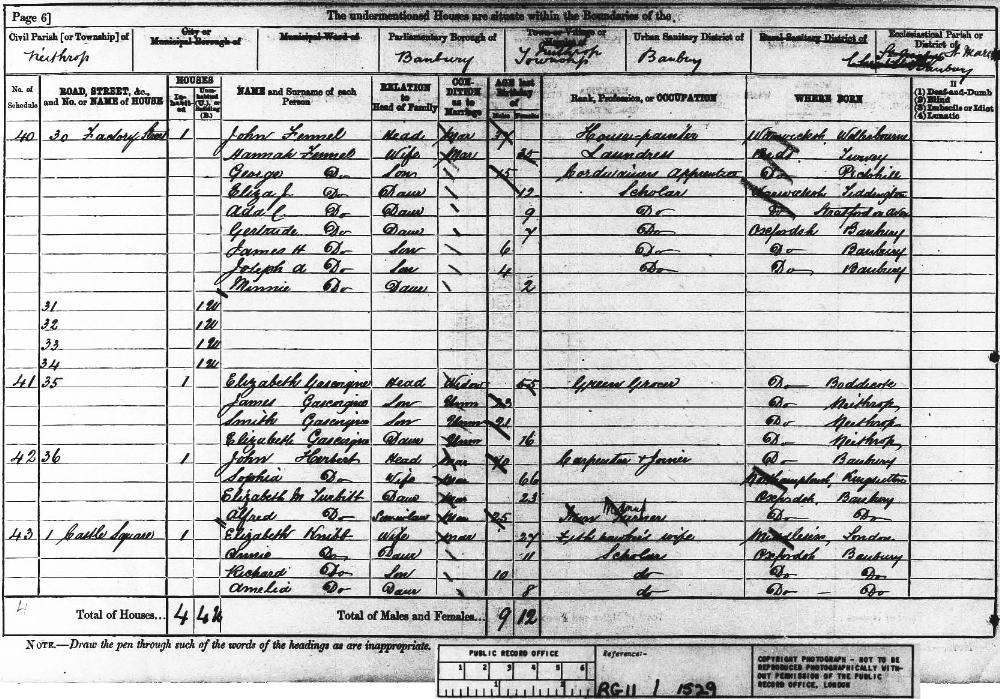 Page 6] The undermentioned Houses are situate within the Boundaries of the
Civil Parish [or Township] of City or Municipal Borough of Municipal Ward of Parliamentary Borough of Town or Village or Urban Sanitary District of Rural Sanitary District of Ecclesiastical Parish or District of
Neithrop Banbury Neithrop Township Banbury St Mary Banbury
No. of Schedule ROAD, STREET, &c., and No. or NAME of HOUSE HOUSES Inhabited Uninhabited (U.), or Building (B.) NAME and Surname of each Person RELATION to Head of Family CONDITION as to Marriage AGE last Birthday of Males Females Rank, Profession, or OCCUPATION WHERE BORN (1) Deaf-and-Dumb (2) Blind (3) Imbecile or Idiot (4) Lunatic
40 30 Factory Street 1 John Fennel Head Mar House-painter Warwicksh
Hannah Fennel Wife Mar 35 Laundress Beds Turvey
George Do Son 15 Cordwainers Apprentice Do
Eliza J. Do Daur 12 Scholar Warwicksh Tiddington
Ada C. Do Daur 9 Do Do Stratford on Avon
Gertrude Do Daur 7 Do Oxfordsh Banbury
James H Do Son 6 Do Do Banbury
Joseph A Do Son 4 Do Do Banbury
Minnie Do Daur 2
31 1 U
32 1 U
33 1 U
34 1 U
41 35 1 Elizabeth Gascoigne Head Widow 55 Green Grocer Do Boddicote
James Gascoigne Son Unm 23 Do Neithrop
Smith Gascoigne Son Unm 21 Do Neithrop
Elizabeth Gascoigne Daur Unm 16 Do Neithrop
42 36 1 John Herbert Head Mar 70 Carpenter & Joiner Do Banbury
Sophia Do Wife Mar 66 Northamptonsh Kingsutton
Elizabeth M Turbitt Daur Mar 23 Oxfordsh Banbury
Alfred Do Son in law Mar 25 Iron Turner Do Do
43 1 Castle Square 1 Elizabeth Knibb Wife Mar 27 wife Middlesex London
Annie Do Daur 11 Scholar Oxfordsh Banbury
Richard Do Son 10 do Do Do
Amelia Do Daur 8 do Do Do
4 Total of Houses... 4 4 U Total of Males and Females... 9 12
NOTE.—Draw the pen through such of the words of the headings as are inappropriate.
PUBLIC RECORD OFFICE
1 2 3 4 5 6
1 2
Reference:-
RG 11 / 1529
COPYRIGHT PHOTOGRAPH - NOT TO BE
REPRODUCED PHOTOGRAPHICALLY WITH-
OUT PERMISSION OF THE PUBLIC
RECORD OFFICE, LONDON